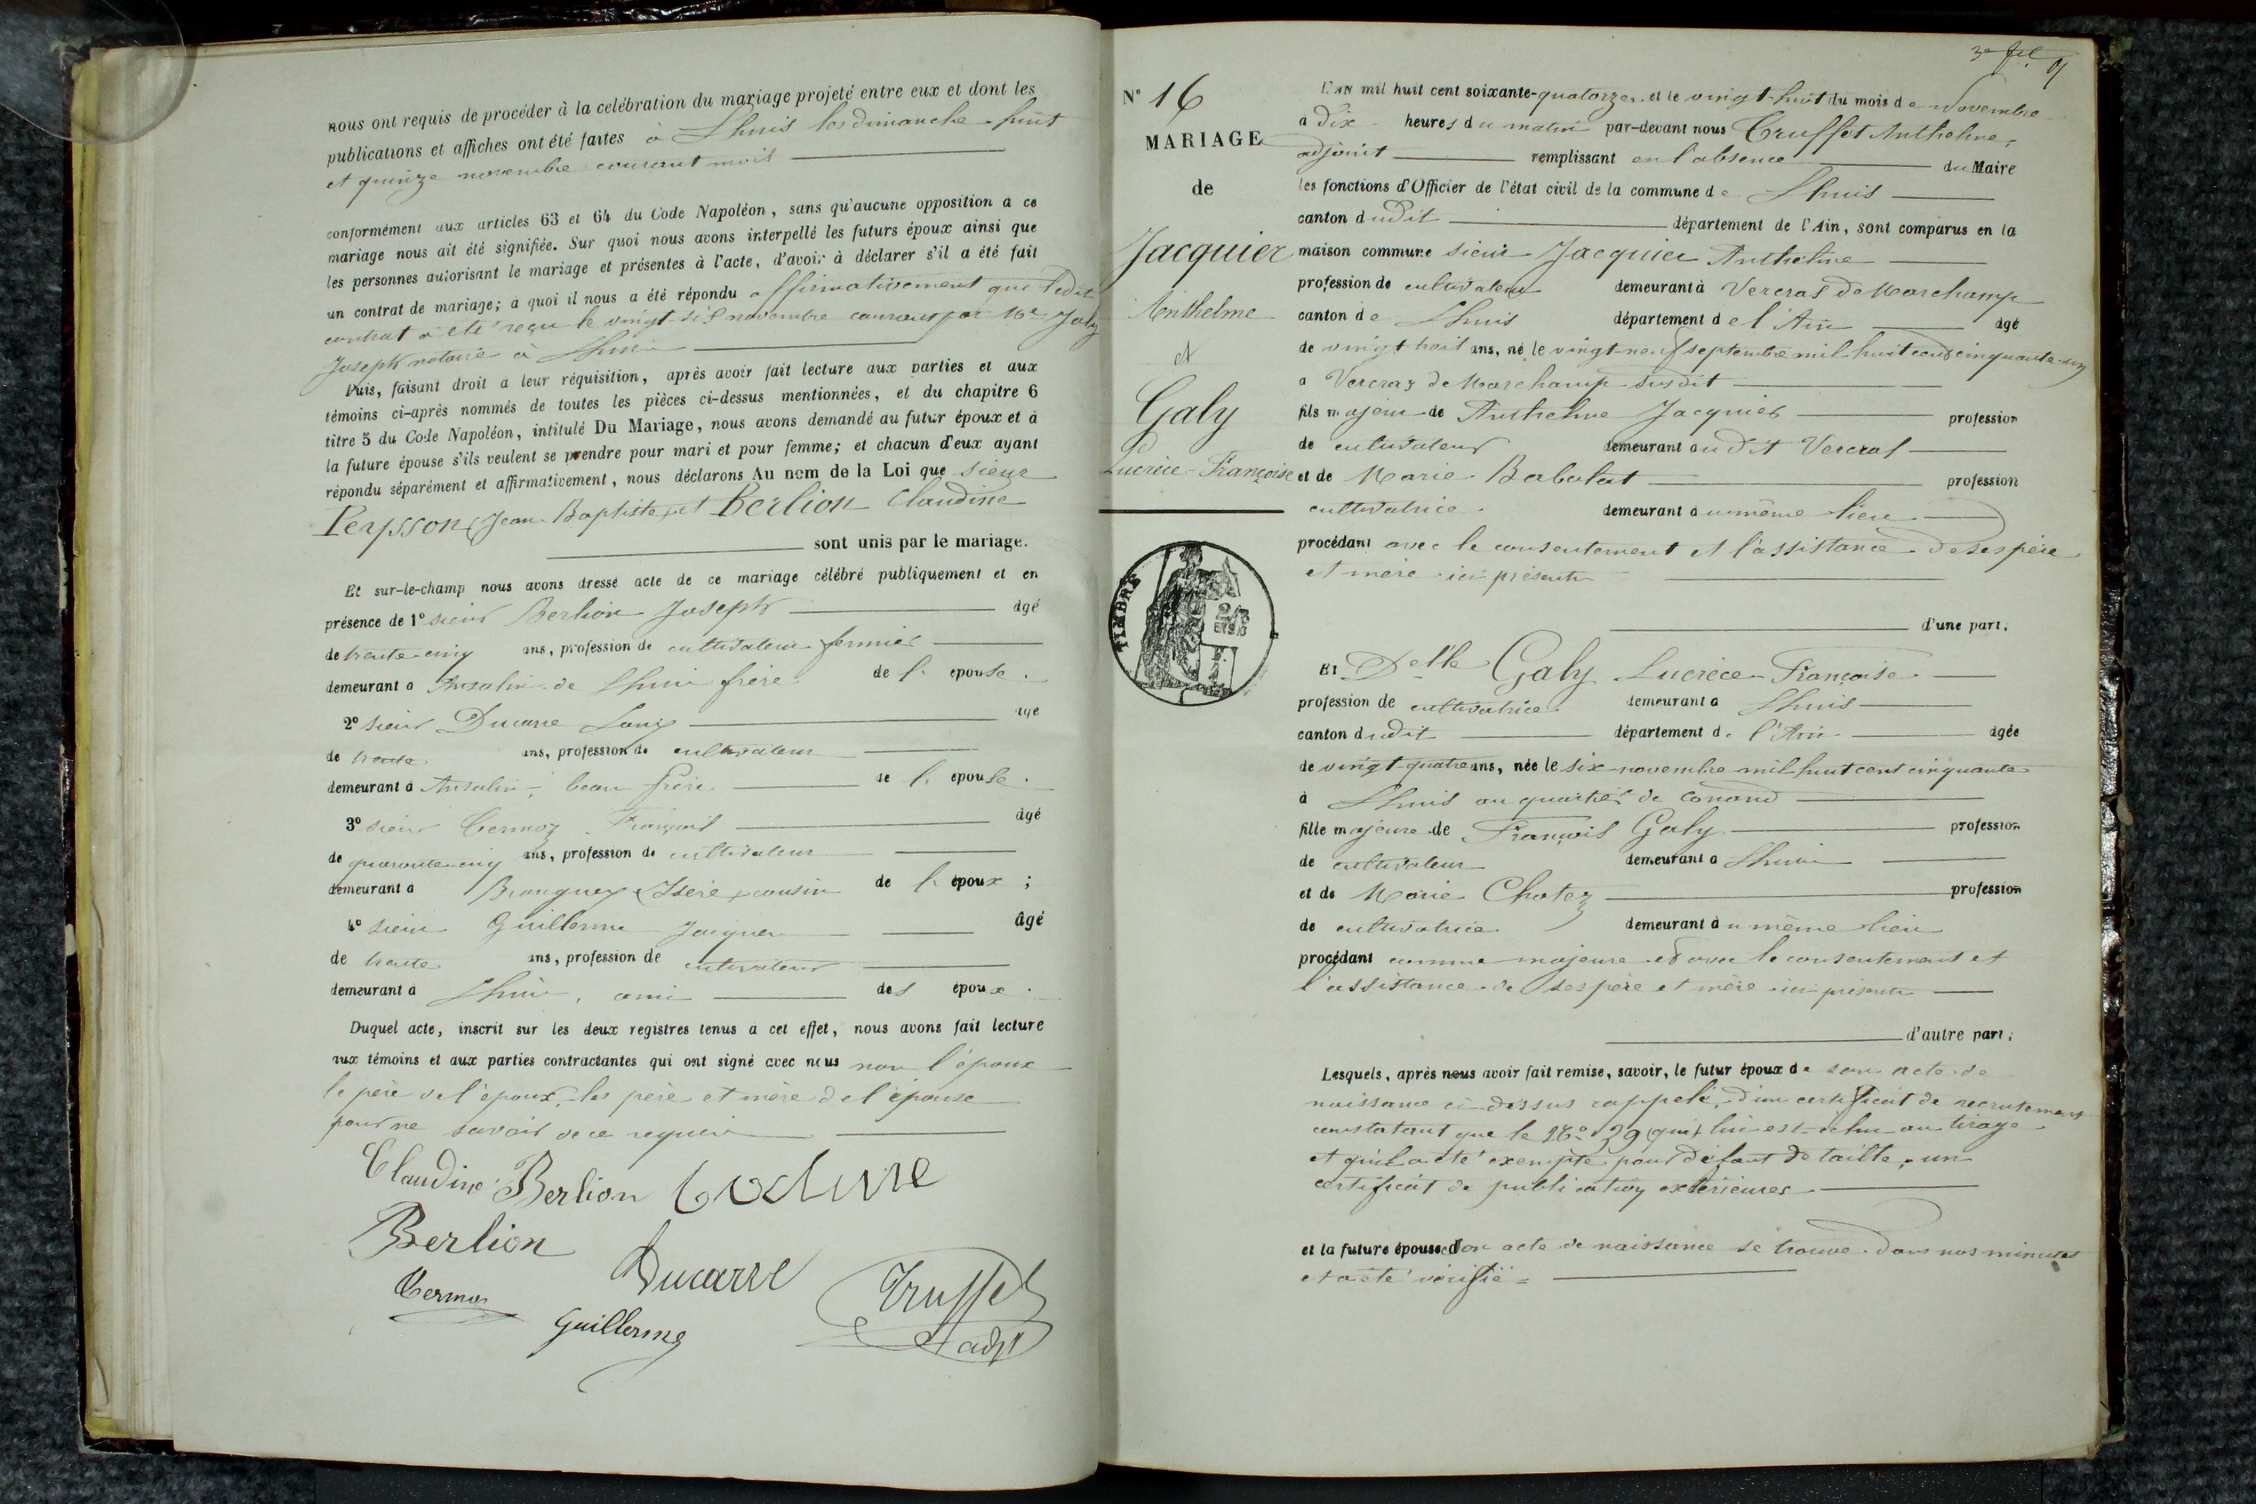 nous ont requis de procéder à la celébration du mariage projeté entre eux et dont les
publications et affiches ont été faites à Lhuis les dimanche huit
et quinze novembre courant mois
conformément aux articles 63 et 64 du Code Napoléon, sans qu'aucune opposition à ce
mariage nous ait été signifiée. Sur quoi nous avons interpellé les futurs époux ainsi que
les personnes autorisant le mariage et présentes à l'acte, d'avoir à déclarer s'il a été fait
un contrat de mariage; à quoi il nous a été répondu affirmativement que ledit
contrat a été reçu le vingt-six novembre courant par Me Joly
Joseph notaire à Lhuis
Puis, faisant droit à leur réquisition, après avoir fait lecture aux parties et aux
témoins ci-après nommés de toutes les pièces ci-dessus mentionnées, et du chapitre 6
titre 5 du Code Napoléon, intitulé Du Mariage, nous avons demandé au futur époux et à
la future épouse s'ils veulent se prendre pour mari et pour femme; et chacun d'eux ayant
répondu séparément et affirmativement, nous déclarons Au nom de la Loi que sieur
Peysson Jean-Baptiste et Berlion Claudine
sont unis par le mariage.
Et sur-le-champ nous avons dressé acte de ce mariage célébré publiquement et en
présence de 1° sieur Berlion Joseph âgé
de trente-cinq ans, profession de cultivateur fermier
demeurant à Ansolin de Lhuis frère de l'épouse.
2° sieur Ducarre Louis âgé
de trente ans, profession de cultivateur
demeurant à Ansolin, beau frère de l'épouse.
3° sieur Cermoz François âgé
de quarante-cinq ans, profession de cultivateur
demeurant à Brangues (Isère) cousin de l'époux;
4° sieur Guillerme âgé
de trente ans, profession de cultivateur
demeurant à Lhuis, ami des époux.
Duquel acte, inscrit sur les deux registres tenus à cet effet, nous avons fait lecture
aux témoins et aux parties contractantes qui ont signé avec nous non l'époux
le père de l'époux, les père et mère de l'épouse
pour ne savoir de ce requis
Claudine Berlion
Berlion
Ducarre
Cermoz
Guillerme
Truffet
adjt
N° 16
MARIAGE
de
Jacquier
Anthelme
et
Galy
Lucrèce-Françoise
TIMBRE
L'AN mil huit cent soixante-quatorze et le vingt-huit du mois de novembre
à dix heures du matin par-devant nous Truffet Anthelme,
adjoint remplissant en l'absence du Maire
les fonctions d'Officier de l'état civil de la commune de Lhuis
canton dudit département de l'Ain, sont comparus en la
maison commune sieur Jacquier Anthelme
profession de cultivateur demeurant à Vercras de Marchamp
canton de Lhuis département de l'Ain âgé
de vingt trois ans, né le vingt-neuf septembre mil huit cent cinquante-un
à Vercraz de Marchamp susdit
fils majeur de Anthelme Jacquier profession
de cultivateur demeurant audit Vercras
et de Marie Babolat profession
cultivatrice demeurant au même lieu
procédant avec le consentement et l'assistance de ses père
et mère ici présents
d'une part;
Et Delle Galy Lucrèce-Françoise
profession de cultivatrice demeurant à Lhuis
canton dudit département de l'Ain âgée
de vingt-quatre ans, née le six novembre mil huit cent cinquante
à Lhuis au quartier de Conand
fille majeure de François Galy profession
de cultivateur demeurant à Lhuis
et de Marie Chatez profession
de cultivatrice demeurant au même lieu
procédant comme majeure et avec le consentement et
l'assistance de ses père et mère ici présents
d'autre part;
Lesquels, après nous avoir fait remise, savoir, le futur époux de son acte de
naissance ci-dessus rappelé, d'un certificat de recrutement
constatant que le No 39 (qui) lui est echu au tirage
et qu'il a été exempté pour défaut de taille, un
certificat de publication extérieures
et la future épouse don acte de naissance se trouve dans nos minutes
et a été vérifié